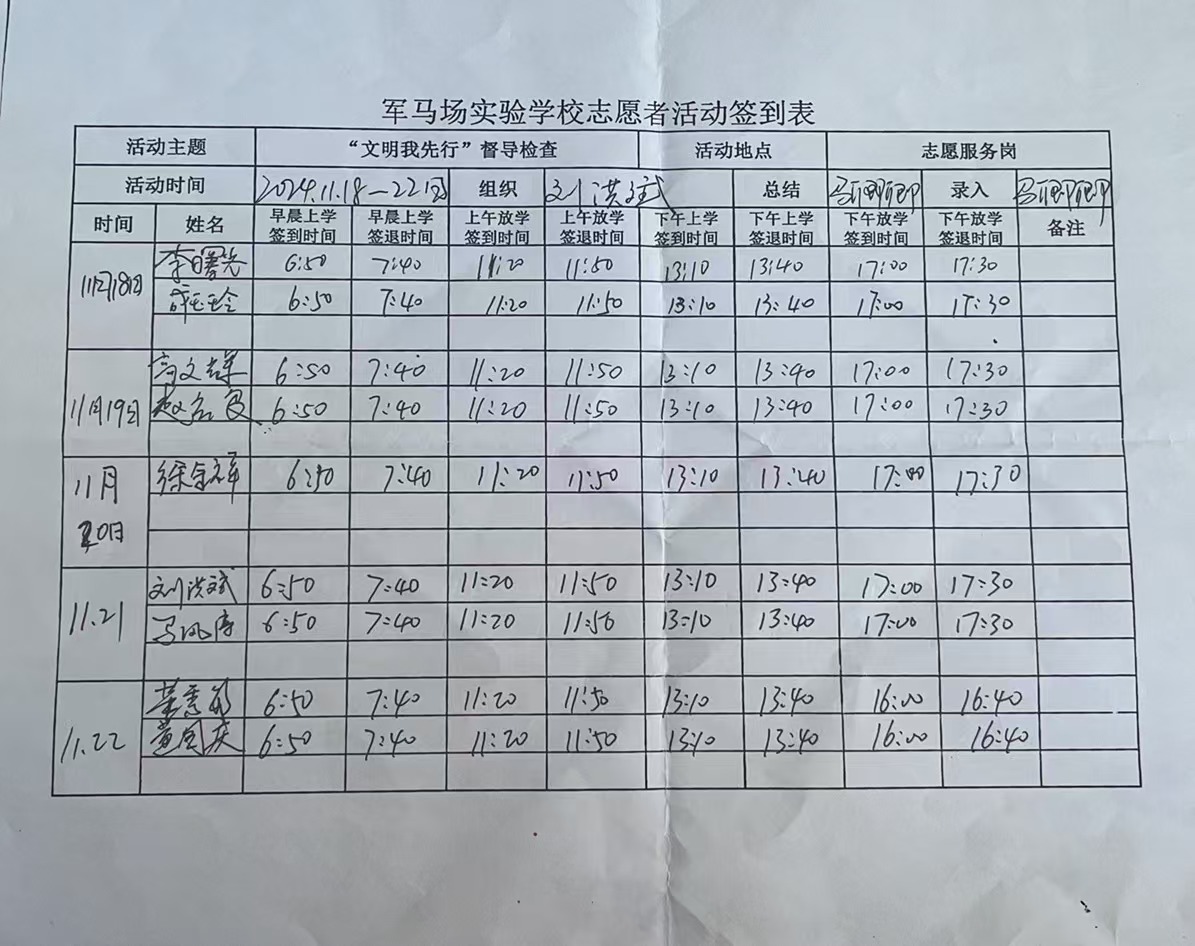 军马场实验学校志愿者活动签到表
活动主题 “文明我先行”督导检查 活动地点 志愿服务岗
活动时间 2024.11.18-22日 组织 刘洪斌 总结 录入
时间 姓名 早晨上学签到时间 早晨上学签退时间 上午放学签到时间 上午放学签退时间 下午上学签到时间 下午上学签退时间 下午放学签到时间 下午放学签退时间 备注
11月18日 李曙光 6:50 7:40 11:20 11:50 13:10 13:40 17:00 17:30
6:50 7:40 11:20 11:50 13:10 13:40 17:00 17:30
11月19日 6:50 7:40 11:20 11:50 13:10 13:40 17:00 17:30
6:50 7:40 11:20 11:50 13:10 13:40 17:00 17:30
11月20日 6:50 7:40 11:20 11:50 13:10 13:40 17:00 17:30
11.21 刘洪斌 6:50 7:40 11:20 11:50 13:10 13:40 17:00 17:30
6:50 7:40 11:20 11:50 13:10 13:40 17:00 17:30
11.22 6:50 7:40 11:20 11:50 13:10 13:40 16:00 16:40
黄国庆 6:50 7:40 11:20 11:50 13:10 13:40 16:00 16:40